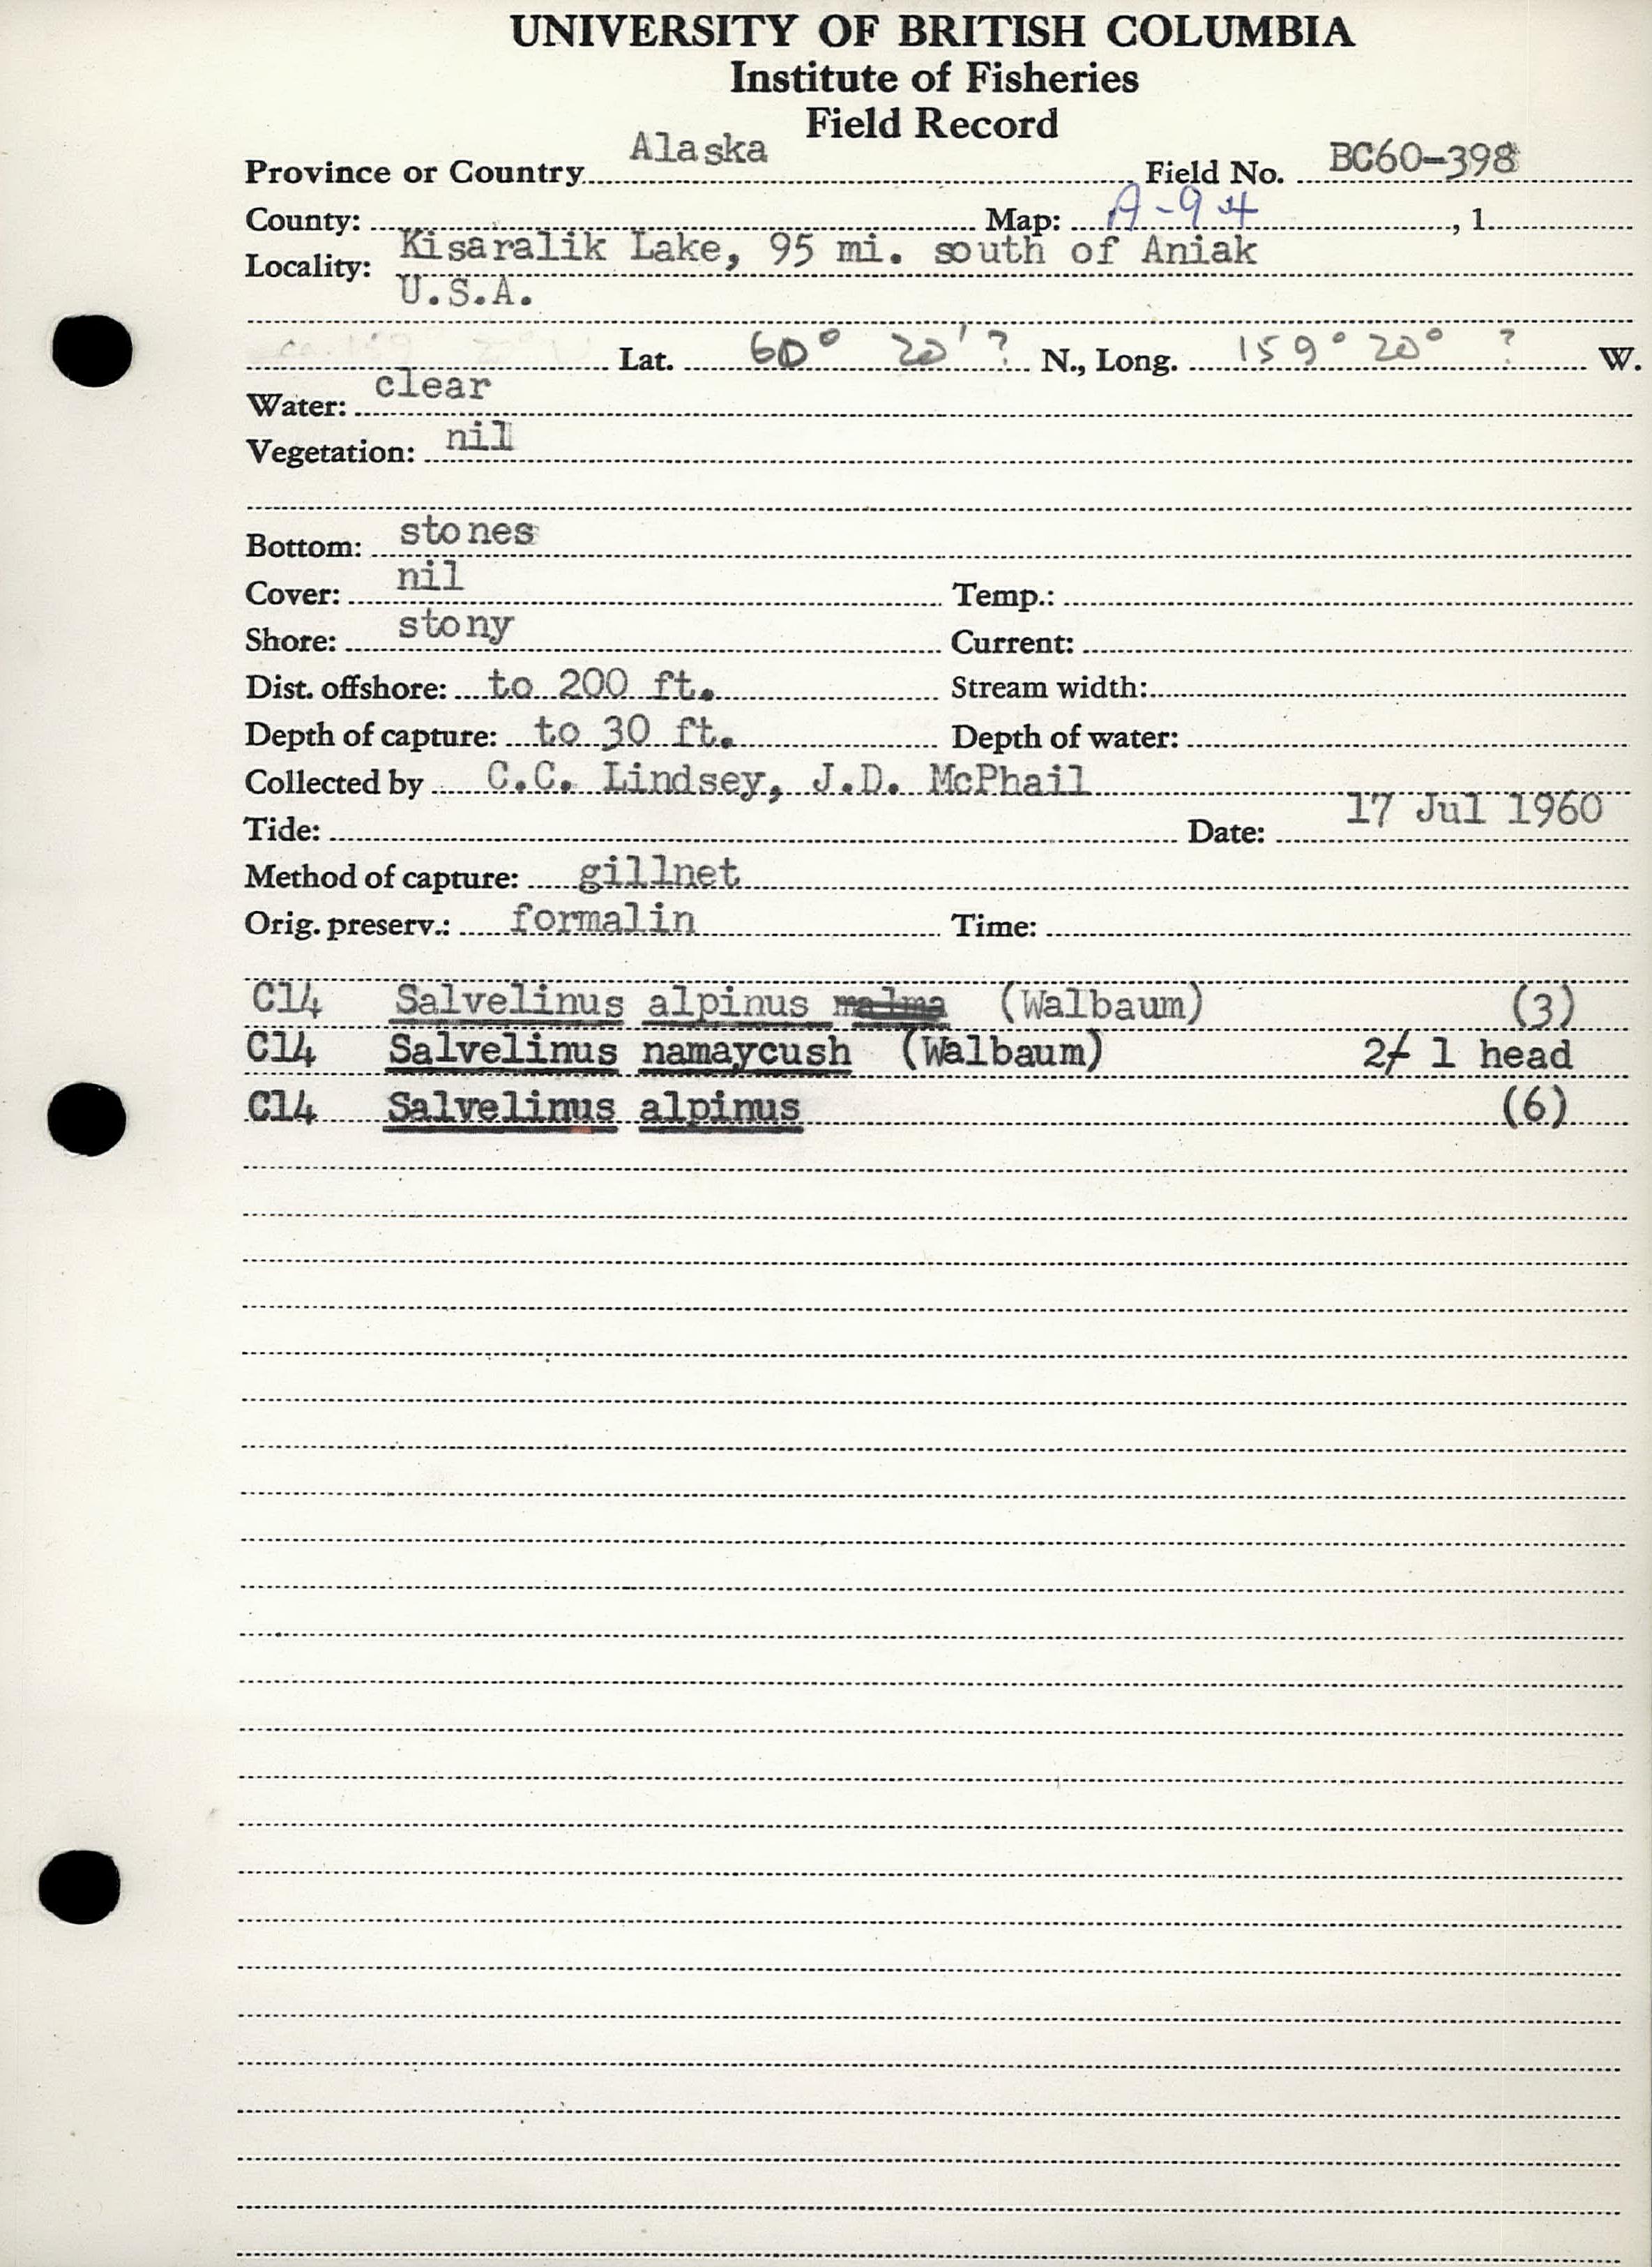 UNIVERSITY OF BRITISH COLUMBIA
Institute of Fisheries
Field Record
Province or Country Alaska Field No. BC60-398
County: Map: A-94, 1
Locality: Kisaralik Lake, 95 mi. south of Aniak
U.S.A.
Lat. 60° 20' ? N., Long. 159° 20° ? W.
Water: clear
Vegetation: nil
Bottom: stones
Cover: nil Temp.:
Shore: stony Current:
Dist. offshore: to 200 ft. Stream width:
Depth of capture: to 30 ft. Depth of water:
Collected by C.C. Lindsey, J.D. McPhail
Tide: Date: 17 Jul 1960
Method of capture: gillnet
Orig. preserv.: formalin Time:
C14 Salvelinus alpinus malma (Walbaum) (3)
C14 Salvelinus namaycush (Walbaum) 2/ 1 head
C14 Salvelinus alpinus (6)